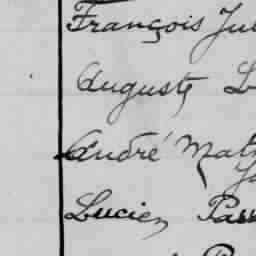 François Ju
Auguste L
André Mat
Lucien Pas